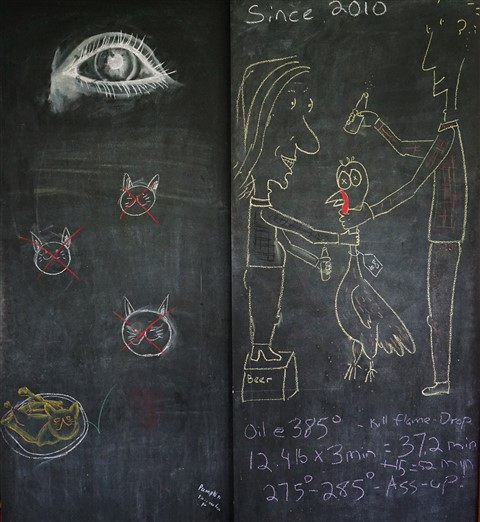 Since 2010
?
Beer
Oil @ 385° - Kill flame - Drop
12.4 lb x 3 min = 37.2 min
+15 = 52 min
275° - 285° - Ass-up!
Pumpkin